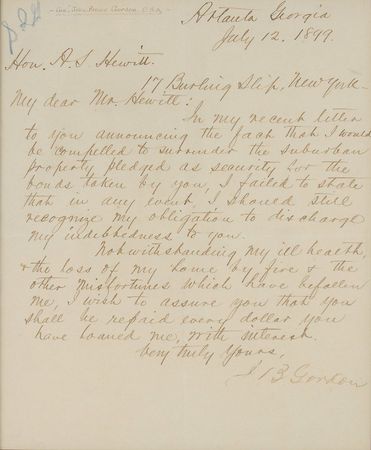 Gen. John Brown Gordon, C.S.A.
Atlanta Georgia
July 12, 1899.
Hon. A. S. Hewitt.
17 Burling Slip, New York.
My dear Mr. Hewitt:
In my recent letter
to you announcing the fact that I would
be compelled to surrender the suburban
property pledged as security for the
bonds taken by you, I failed to state
that in any event, I should still
recognize my obligation to discharge
my indebtedness to you.
Notwithstanding my ill health,
& the loss of my home by fire & the
other misfortunes which have befallen
me, I wish to assure you that you
shall be repaid every dollar you
have loaned me, with interest.
Very truly yours,
J B Gordon